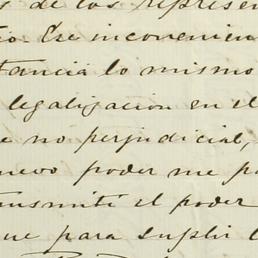 s de los represen
io. Ese inconvenien
tancia lo mismo
legalizacion en el
e no perjudicial,
nuevo poder me pa
ansmiti el poder
que para suplir l